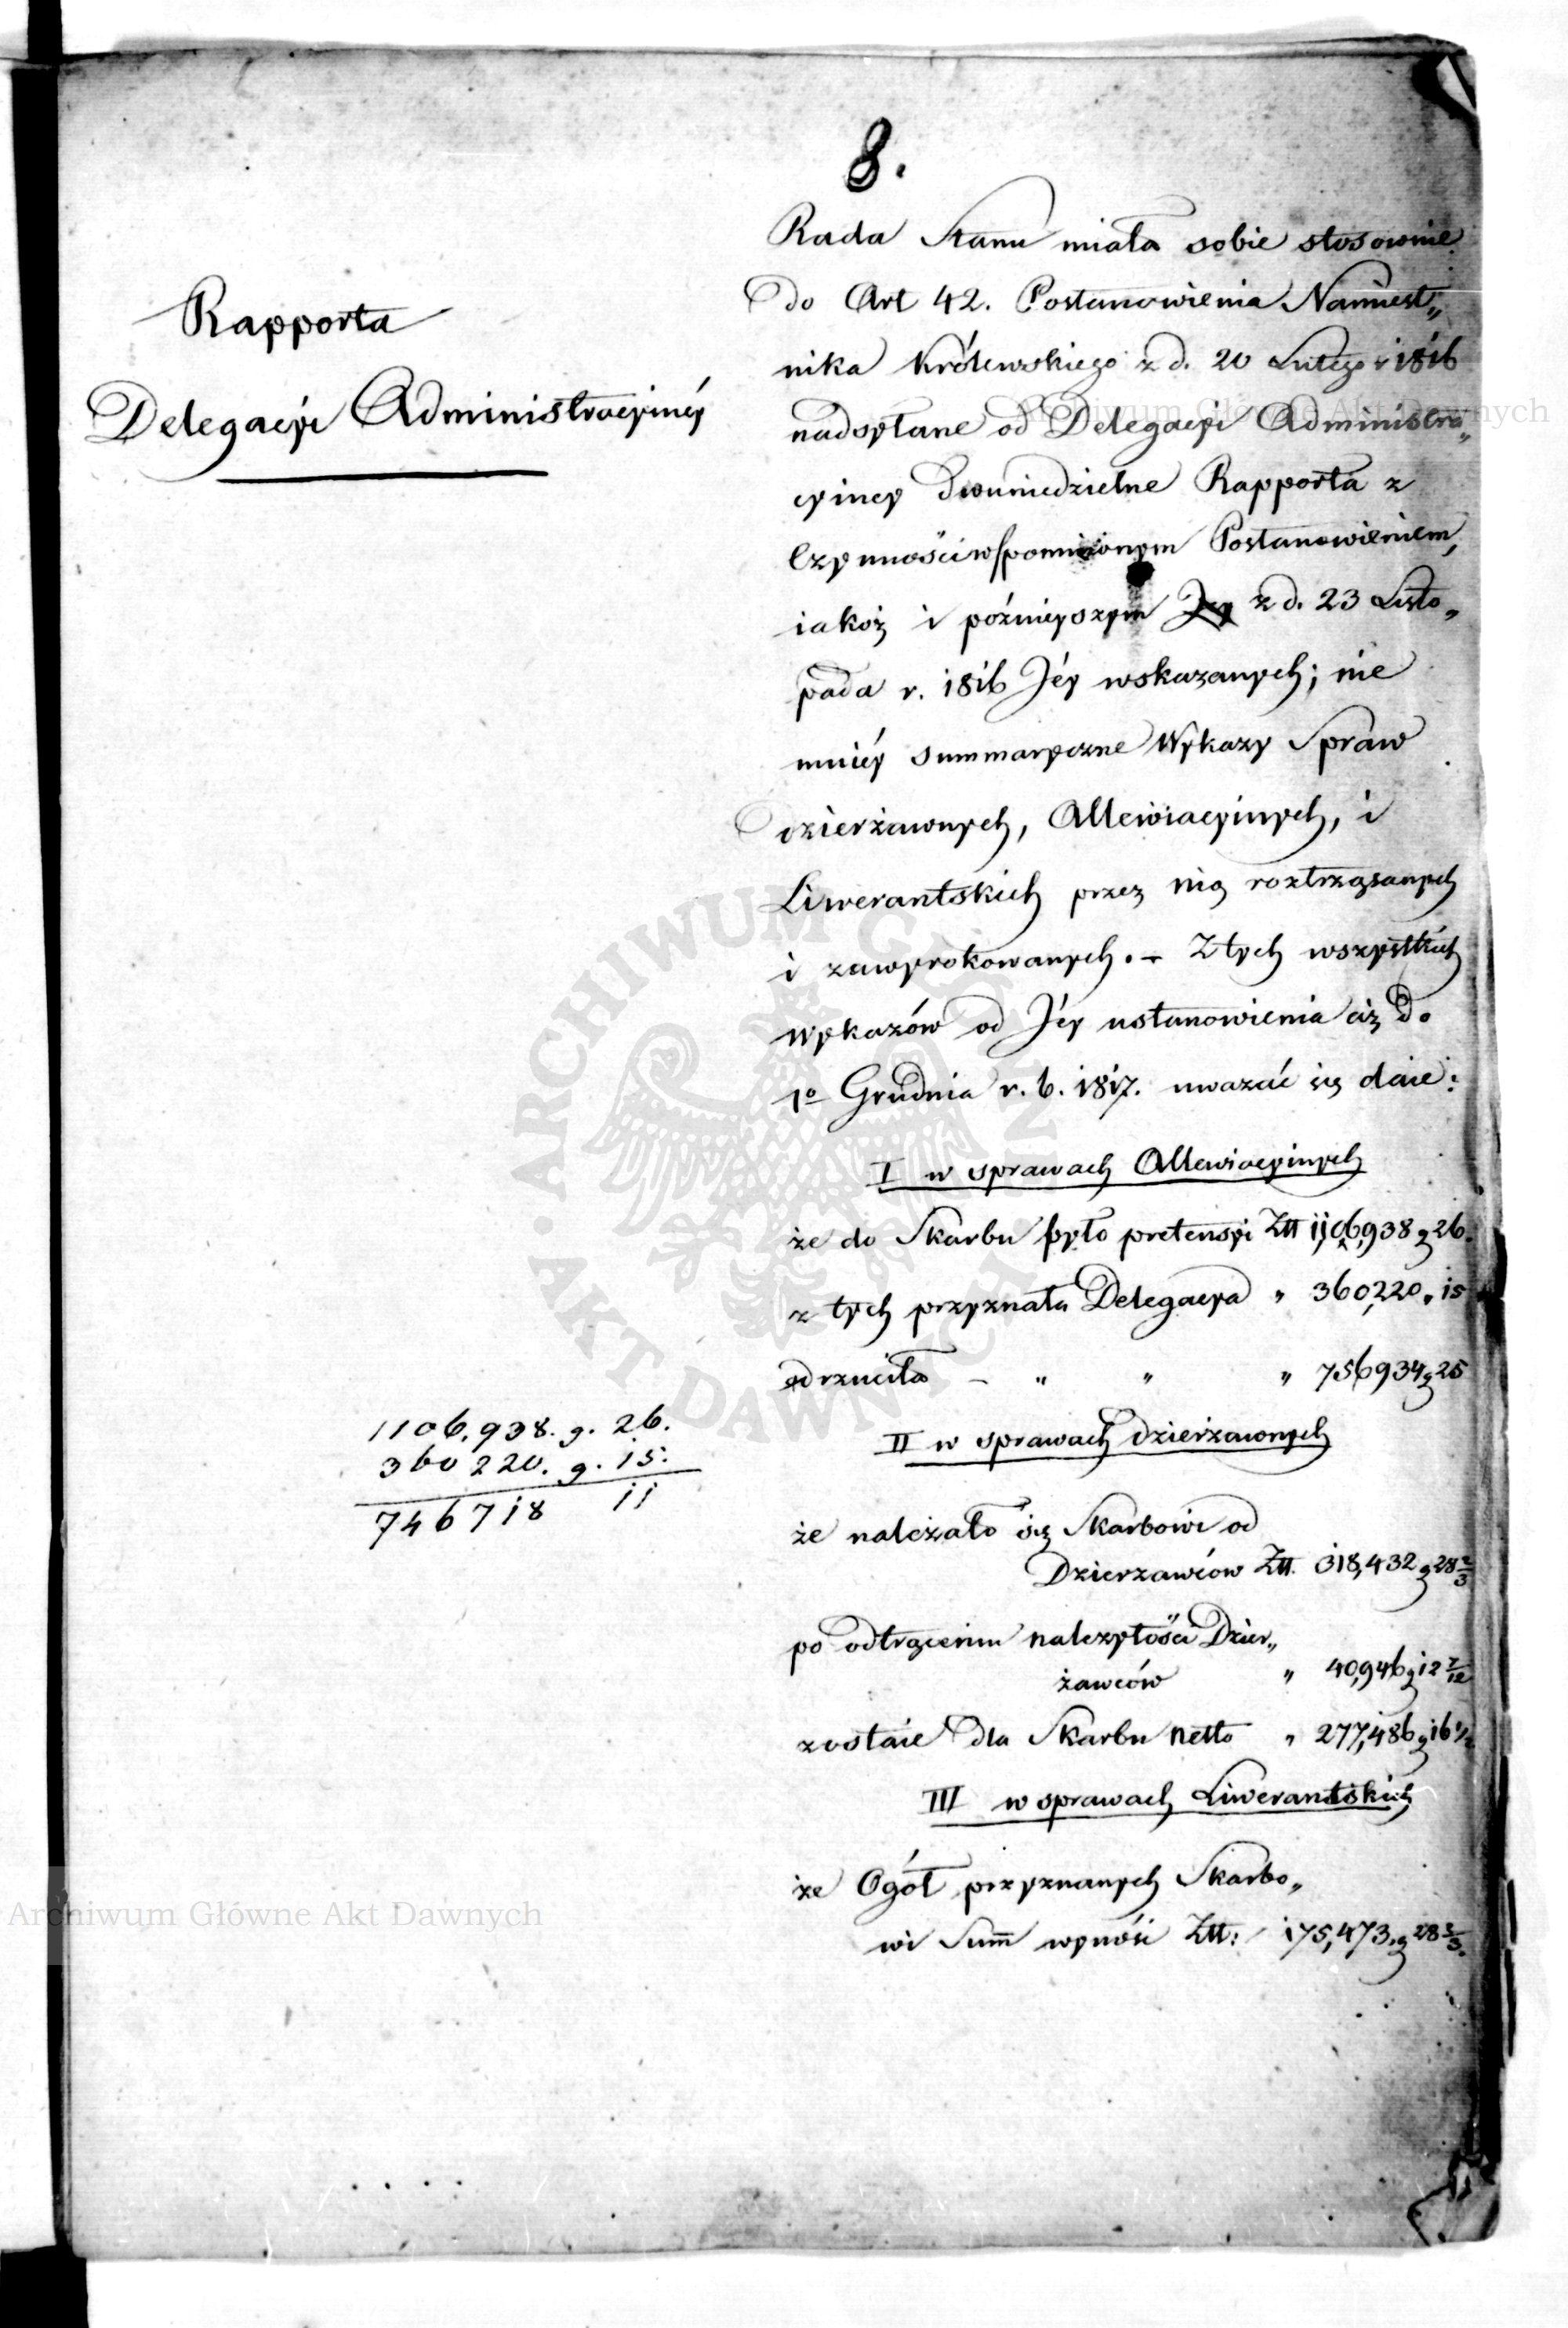 8.
Rapporta
Delegacyi Administracyinéy
Rada Stanu miała sobie stosownie
do Art 42. Postanowienia Namiest„
nika Królewskiego z d. 20 Lutego r 1816
nadsyłane od Delegacyi Administra„
cyiney Dwuniedzielne Rapporta z
Czynności wspomnionym Postanowieniem,
iakoż i poźnieyszym z d. 23 Listo„
pada r. 1816 Jéy wskazanych; nie
mniéy summaryczne Wykazy Spraw
dzierżawnych, Allewiacyinych, i
Liwerantskich przez nią roztrząsanych
i zawyrokowanych. – Z tych wszystkich
Wykazów od Jéy ustanowienia aż do
1o Grudnia r. b. 1817. uważać się daie:
I w sprawach Allewiacyinych
że do Skarbu było pretensyi Ztt 1,106,938 g 26.
z tych przyznała Delegacya " 360,220 " 15
odrzuciła – " " " 756934 g 25
1106.938. g. 26.
360 220. g. 15.
746718 11
II w sprawach dzierżawnych
że należało się Skarbowi od
Dzierzawców Ztt. 318,432 g 28 2/3
po odtrąceniu należytości Dzier„
żawców " 40,946 g 12 7/12
zostaie dla Skarbu netto " 277,486 g 16 1/2
III w sprawach Liwerantskich
że Ogół przyznanych Skarbo„
wi Summ wynosi Ztt: 175,473. g 28 2/3.
Archiwum Główne Akt Dawnych
Archiwum Główne Akt Dawnych
ARCHIWUM GŁÓWNE AKT DAWNYCH